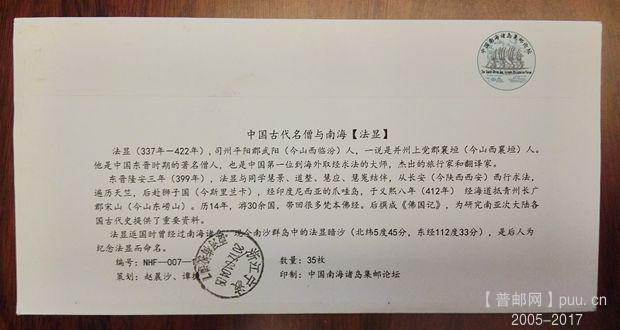 中国南海诸岛集邮论坛
中国古代名僧与南海【法显】
法显（337年—422年），司州平阳郡武阳（今山西临汾）人，一说是并州上党郡襄垣（今山西襄垣）人。
他是中国东晋时期的著名僧人，也是中国第一位到海外取经求法的大师，杰出的旅行家和翻译家。
东晋隆安三年（399年），法显与同学慧景、道整、慧应、慧嵬结伴，从长安（今陕西西安）西行求法，
遍历天竺，后赴狮子国（今斯里兰卡），经印度尼西亚的爪哇岛，于义熙八年（412年）经海道抵青州长广
郡宋山（今山东崂山）。历14年，游30余国，带回很多梵本佛经。后撰成《佛国记》，为研究南亚次大陆各
国古代史提供了重要资料。
法显返国时曾经过南海诸岛，现今南沙群岛中的法显暗沙（北纬5度45分，东经112度33分），是后人为
纪念法显而命名。
编号：NHF-007 数量：35枚
策划：赵晨沙、谭 印制：中国南海诸岛集邮论坛
浙江宁波
2017.
【普邮网】puu.cn
2005-2017